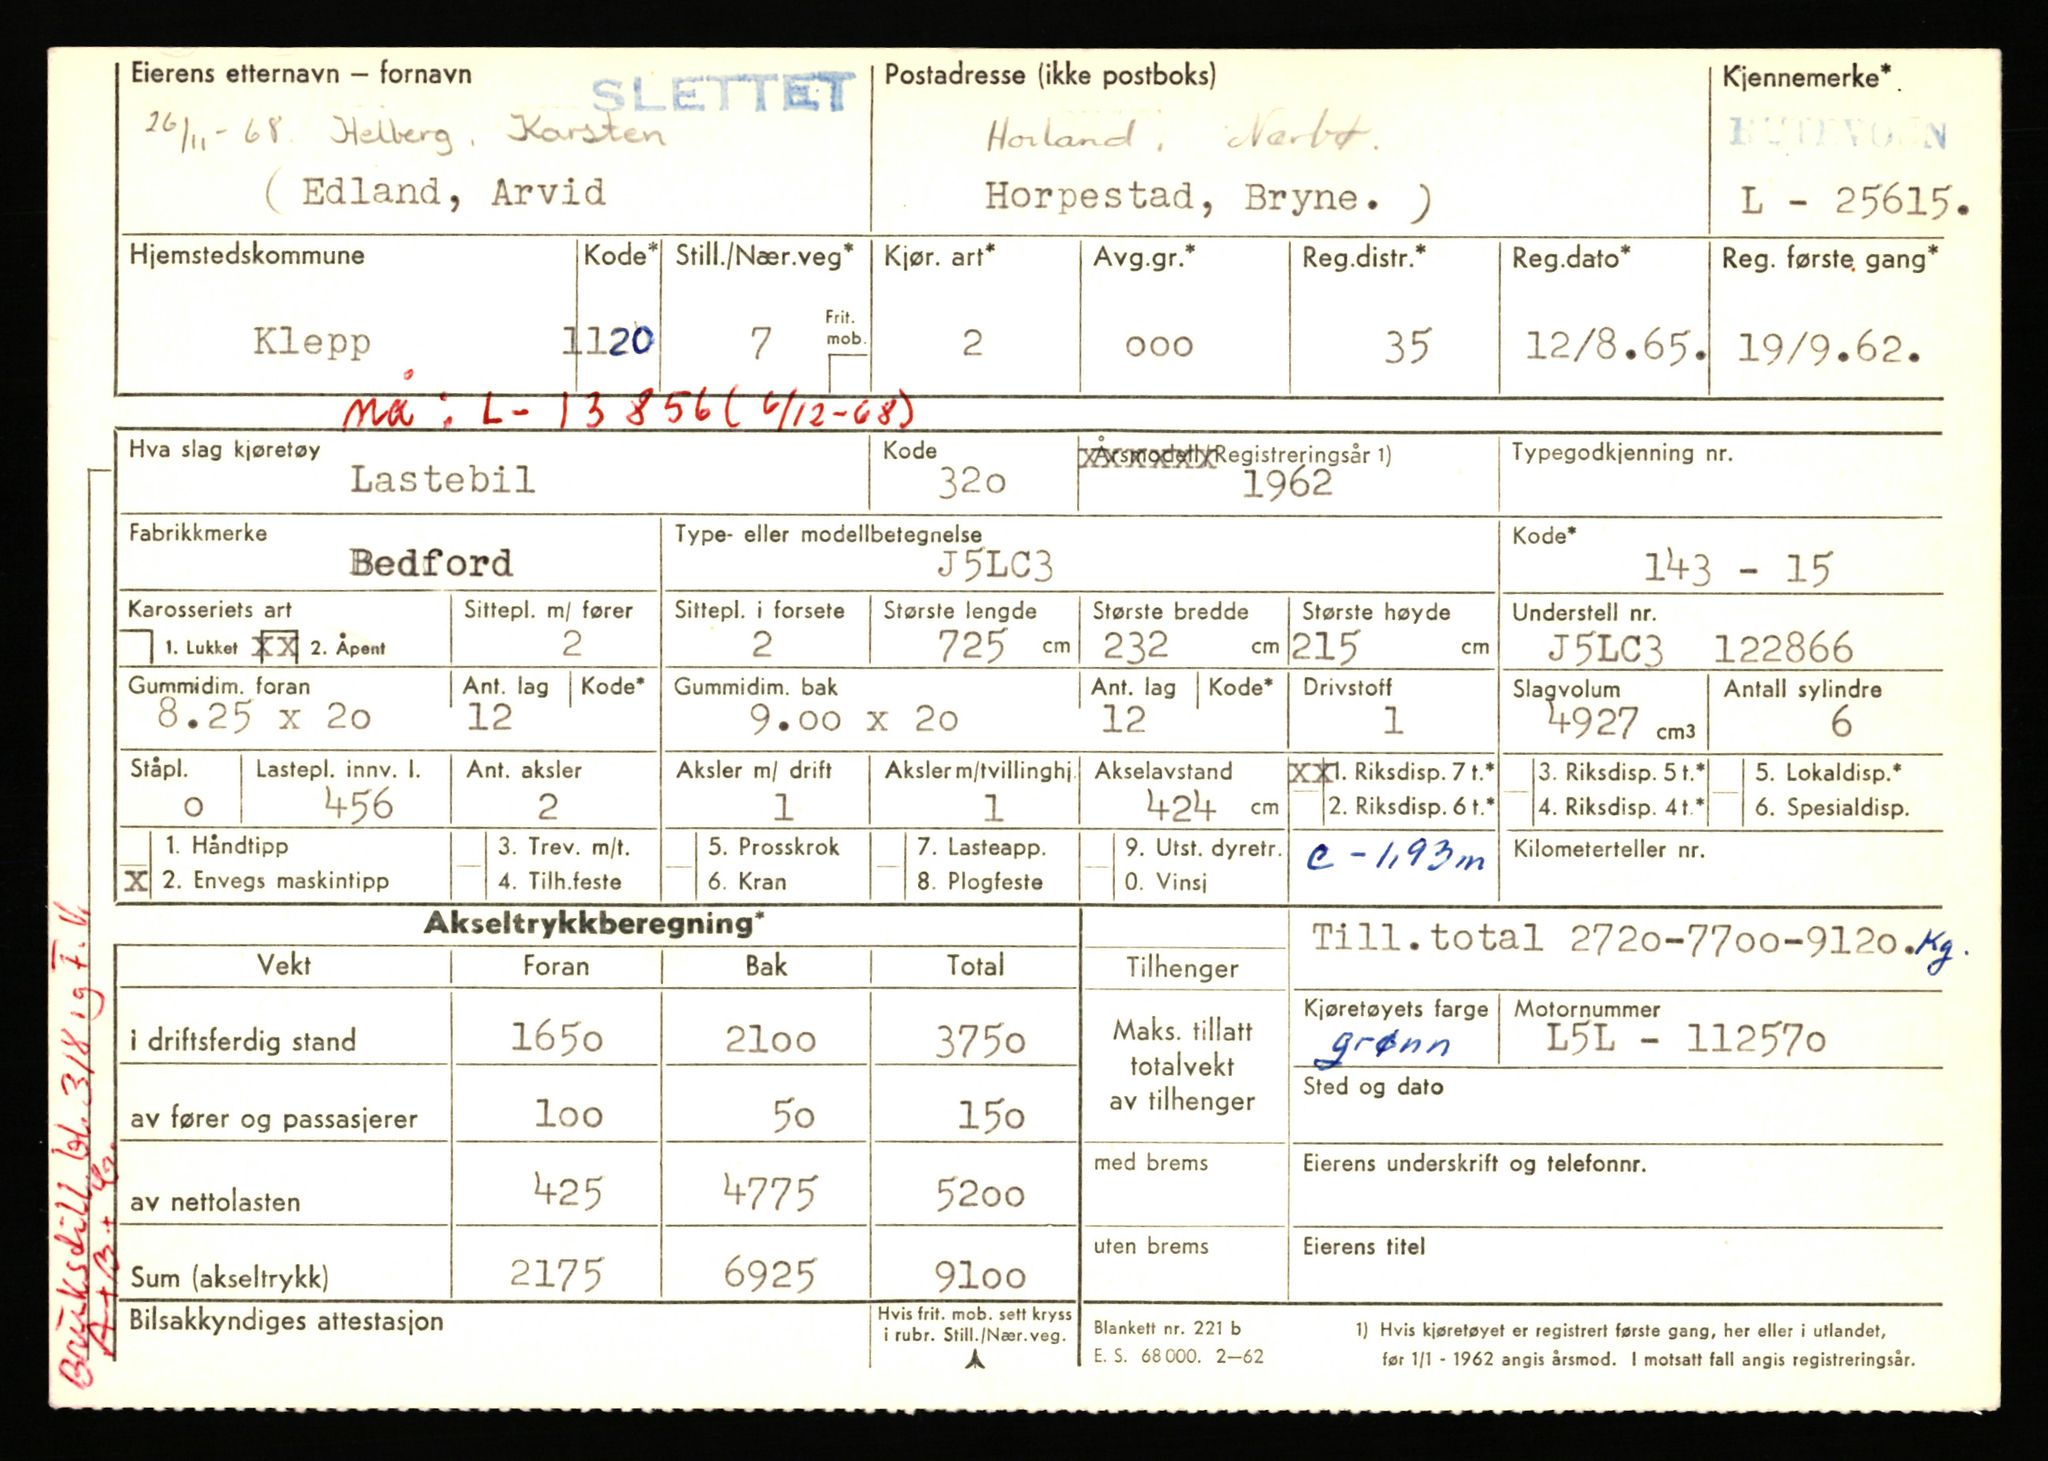 Eierens etternavn – fornavn
SLETTET
Postadresse (ikke postboks)
Kjennemerke*
26/11-68 Helberg, Karsten
Horland, Nærbø.
(Edland, Arvid
Horpestad, Bryne. )
L - 25615.
Hjemstedskommune Kode* Still./Nær.veg* Kjør. art* Avg.gr.* Reg.distr.* Reg.dato* Reg. første gang*
Klepp 1120 7 Frit. mob. 2 000 35 12/8.65. 19/9.62.
nå: L-13856 (6/12-68)
Hva slag kjøretøy Kode Årsmodell/Registreringsår 1) Typegodkjenning nr.
Lastebil 320 1962
Fabrikkmerke Type- eller modellbetegnelse Kode*
Bedford J5LC3 143 - 15
Karosseriets art Sittepl. m/ fører Sittepl. i forsete Største lengde Største bredde Største høyde Understell nr.
1. Lukket XX 2. Åpent 2 2 725 cm 232 cm 215 cm J5LC3 122866
Gummidim. foran Ant. lag Kode* Gummidim. bak Ant. lag Kode* Drivstoff Slagvolum Antall sylindre
8.25 x 20 12 9.00 x 20 12 1 4927 cm3 6
Ståpl. Lastepl. innv. l. Ant. aksler Aksler m/ drift Aksler m/tvillinghj. Akselavstand XX 1. Riksdisp. 7 t.* 3. Riksdisp. 5 t.* 5. Lokaldisp.*
0 456 2 1 1 424 cm 2. Riksdisp. 6 t.* 4. Riksdisp. 4 t.* 6. Spesialdisp.
1. Håndtipp 3. Trev. m/t. 5. Prosskrok 7. Lasteapp. 9. Utst. dyretr. c - 1,93 m Kilometerteller nr.
X 2. Envegs maskintipp 4. Tilh.feste 6. Kran 8. Plogfeste 0. Vinsj
Akseltrykkberegning*
Till.total 2720-7700-9120.Kg.
Vekt Foran Bak Total Tilhenger
Kjøretøyets farge Motornummer
i driftsferdig stand 1650 2100 3750
grønn L5L - 112570
Maks. tillatt
totalvekt
av tilhenger
Sted og dato
av fører og passasjerer 100 50 150
med brems Eierens underskrift og telefonnr.
av nettolasten 425 4775 5200
uten brems Eierens titel
Sum (akseltrykk) 2175 6925 9100
Bilsakkyndiges attestasjon
Hvis frit. mob. sett kryss
i rubr. Still./Nær.veg.
Blankett nr. 221 b
E. S. 68 000. 2–62
1) Hvis kjøretøyet er registrert første gang, her eller i utlandet,
før 1/1 - 1962 angis årsmod. I motsatt fall angis registreringsår.